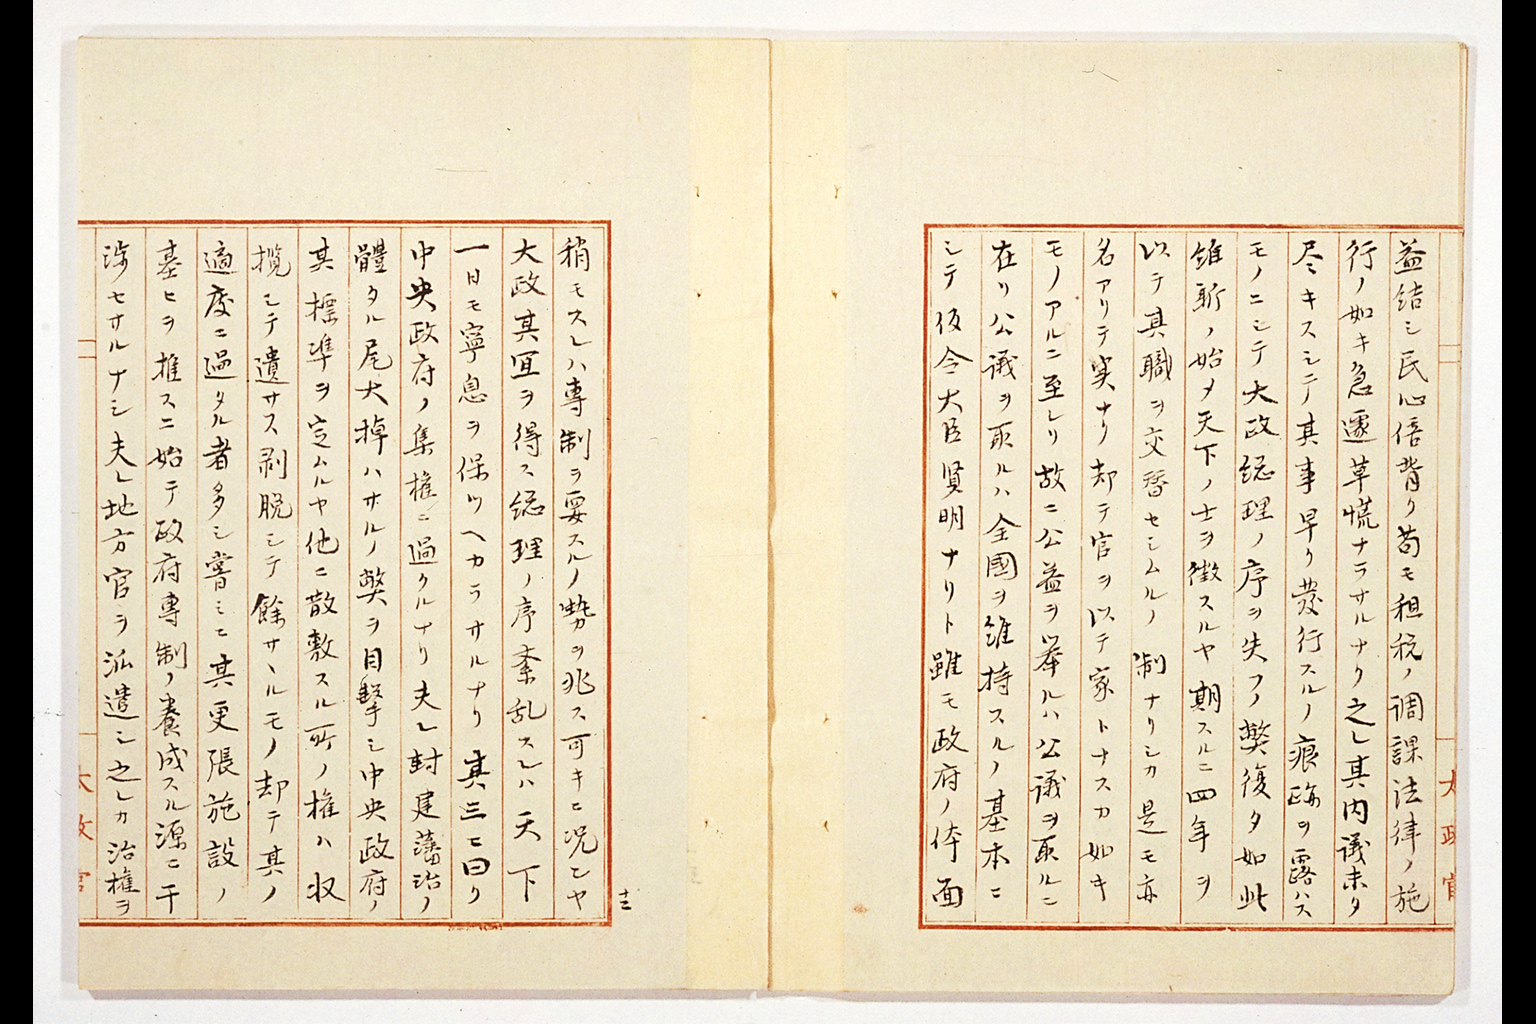 益結シ民心倍背ク苟モ租税ノ調課法律ノ施
行ノ如キ急遽草慌ナラサルナク之レ其内議未タ
尽キスシテ其事早ク発行スルノ痕跡ヲ露ハス
モノニシテ大政総理ノ序ヲ失フノ弊復タ如此
維新ノ始メ天下ノ士ヲ徴スルヤ期スルニ四年ヲ
以テ其職ヲ交替セシムルノ制ナリシカ是モ亦
名アリテ実ナク却テ官ヲ以テ家トナスカ如キ
モノアルニ至レリ故ニ公益ヲ挙ルハ公議ヲ取ルニ
在リ公議ヲ取ルハ全國ヲ維持スルノ基本ニ
シテ仮令大臣賢明ナリト雖モ政府ノ体面
太政官
稍モスレハ専制ヲ要スルノ勢ヲ兆ス可キニ况ヤ
大政其宜ヲ得ス総理ノ序紊乱スレハ天下
一日モ寧息ヲ保ツヘカラサルナリ其三ニ曰ク
中央政府ノ集権ニ過クルナリ夫レ封建藩治ノ
體タル尾大掉ハサルノ弊ヲ目撃シ中央政府ノ
其標準ヲ定ムルヤ他ニ散敷スル所ノ権ハ収
攬シテ遺サス剥脱シテ餘サヽルモノ却テ其ノ
適度ニ過タル者多シ嘗ミニ其更張施設ノ
基ヒヲ推スニ始テ政府専制ノ養成スル源ニ干
渉セサルナシ夫レ地方官ヲ派遣シ之レカ治権ヲ
太政官
十三